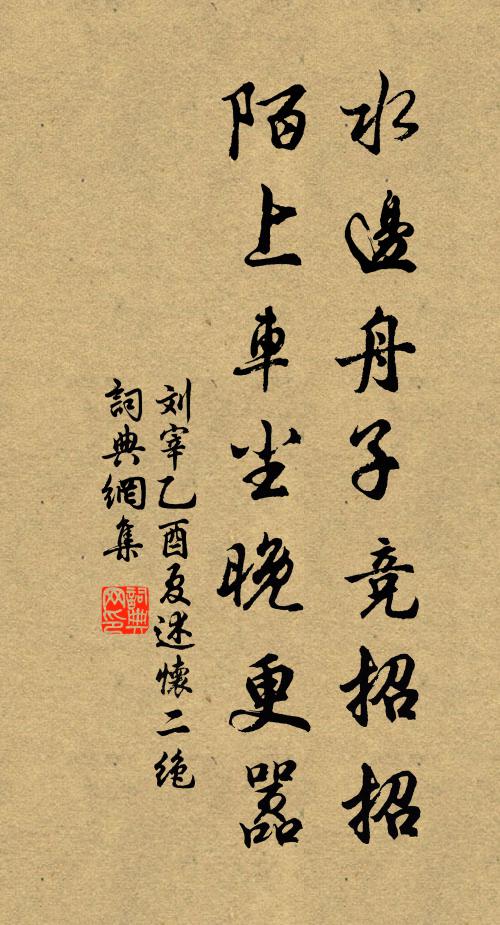 水邊舟子竞招招
陌上車尘晚更嚣
刘宰乙酉夏述懷二绝
詞典網集
詞典网印